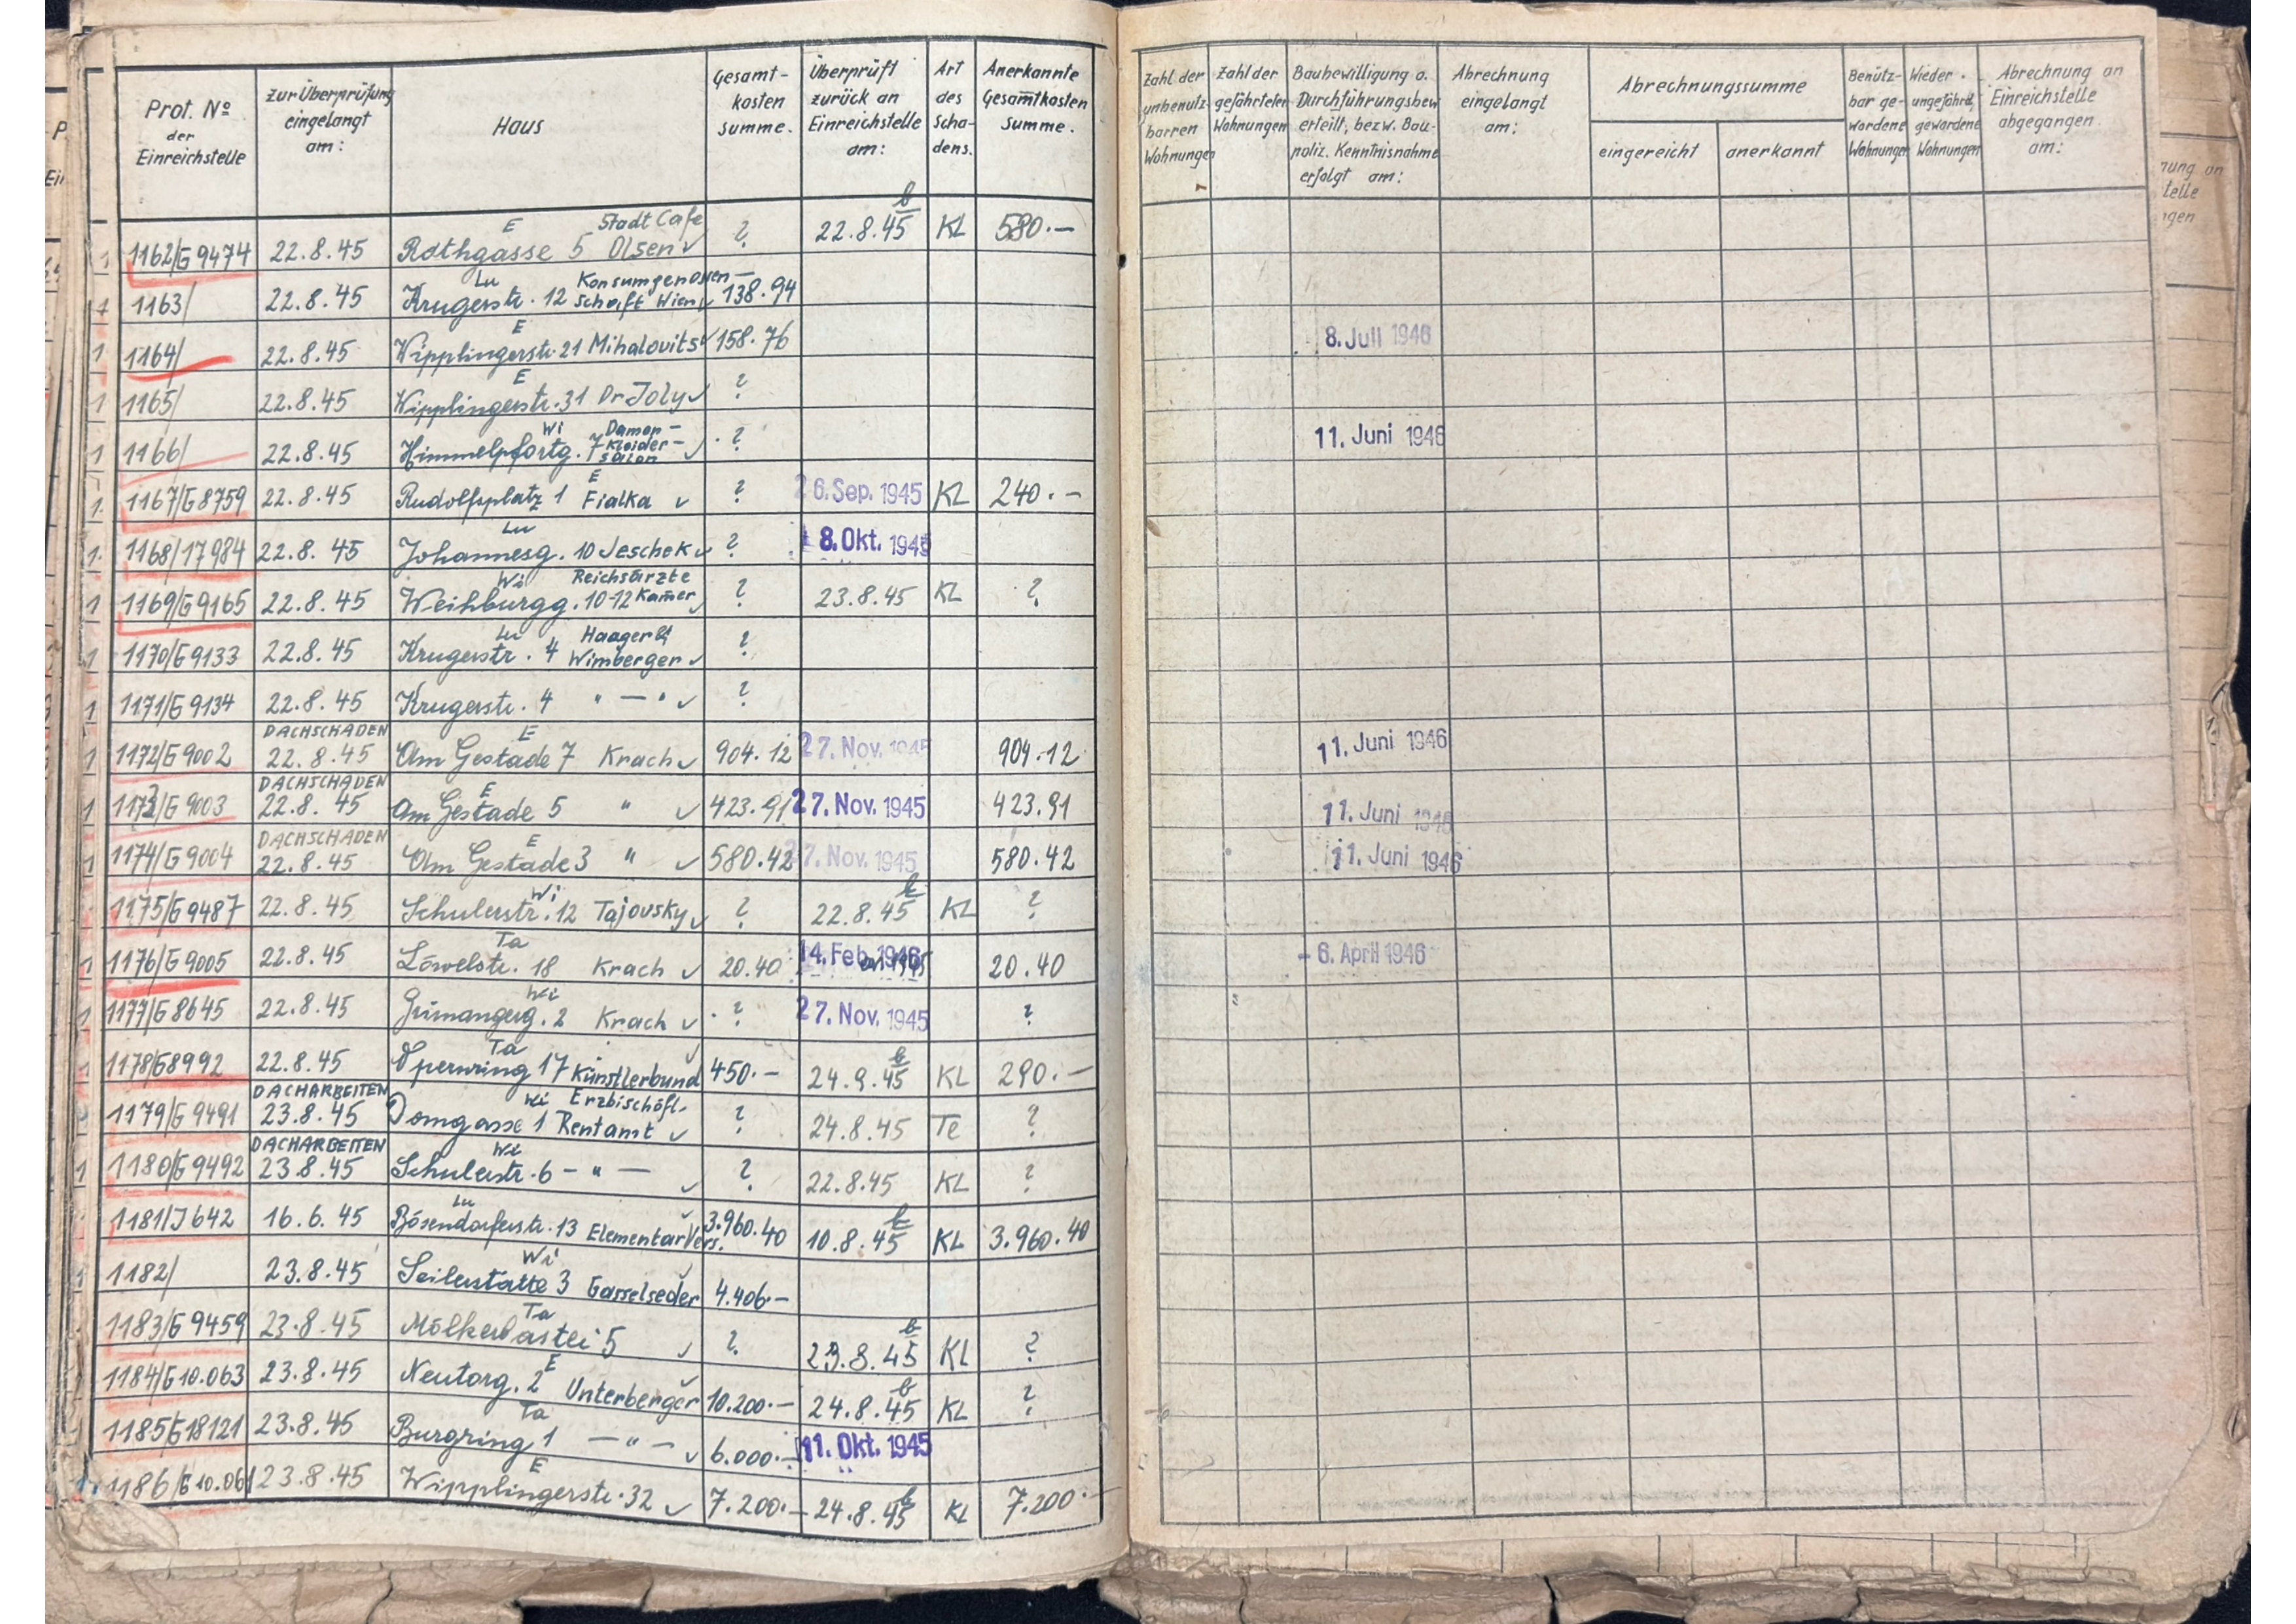 Prot. No der Einreichstelle | Zur Überprüfung eingelangt am: | Haus | Gesamt-kosten summe. | Überprüft zurück an Einreichstelle am: | Art des Scha-dens. | Anerkannte Gesamtkosten Summe. | Zahl der unbenutz-barren Wohnungen | Zahl der gefährteten Wohnungen | Baubewilligung o. Durchführungsbew erteilt, bezw. Bau-poliz. Kenntnisnahme erfolgt am: | Abrechnung eingelangt am: | Abrechnungssumme eingereicht | anerkannt | Benütz-bar ge-wordene Wohnungen | Wieder ungefährd. gewordene Wohnungen | Abrechnung an Einreichstelle abgegangen am:
1 1162/G9474 22.8.45 Rothgasse 5 E Stadt Cafe Olsen ✓ ? 22.8.45 b KL 580.—
1 1163/ 22.8.45 Krugerstr. 12 Lu Konsumgenossen-schaft Wien ✓ 138.94
1 1164/ 22.8.45 Wipplingerstr. 21 E Mihalovits ✓ 158.76 8. Juli 1946
1 1165/ 22.8.45 Wipplingerstr. 31 E Dr Joly ✓ ?
1 1166/ 22.8.45 Himmelpfortg. 7 Wi Damen-Kleider-salon ✓ ? 11. Juni 1946
1. 1167/G8759 22.8.45 Rudolfsplatz 1 E Fialka ✓ ? 26. Sep. 1945 KL 240.—
1. 1168/17984 22.8.45 Johannesg. 10 Lu Jeschek ✓ ? 8. Okt. 1945
1 1169/G9165 22.8.45 Weihburgg. 10-12 Wi Reichsärzte Kam̄er ✓ ? 23.8.45 KL ?
1 1170/G9133 22.8.45 Krugerstr. 4 Lu Haager & Wimberger ✓ ?
1 1171/G9134 22.8.45 Krugerstr. 4 " — " ✓ ?
1 1172/G9002 DACHSCHADEN 22.8.45 Am Gestade 7 E Krach ✓ 904.12 27. Nov. 1945 904.12 11. Juni 1946
1 1173/G9003 DACHSCHADEN 22.8.45 Am Gestade 5 E " ✓ 423.91 27. Nov. 1945 423.91 11. Juni 1946
1 1174/G9004 DACHSCHADEN 22.8.45 Am Gestade 3 E " ✓ 580.42 27. Nov. 1945 580.42 11. Juni 1946
1 1175/G9487 22.8.45 Schulerstr. 12 Wi Tajovsky ✓ ? 22.8.45 b KL ?
1 1176/G9005 22.8.45 Löwelstr. 18 Ta Krach ✓ 20.40 14. Feb. 1946 20.40 - 6. April 1946
1 1177/G8645 22.8.45 Grünangerg. 2 Wi Krach ✓ ? 27. Nov. 1945 ?
1178/G8992 22.8.45 Opernring 17 Ta Künstlerbund ✓ 450.— 24.9.45 b KL 290.—
1179/G9491 DACHARBEITEN 23.8.45 Domgasse 1 Wi Erzbischöfl. Rentamt ✓ ? 24.8.45 Te ?
1 1180/G9492 DACHARBEITEN 23.8.45 Schulerstr. 6 Wi — " — ✓ ? 22.8.45 KL ?
1181/J642 16.6.45 Bösendorferstr. 13 Lu Elementar Vers. ✓ 3.960.40 10.8.45 b KL 3.960.40
1182/ 23.8.45 Seilerstätte 3 Wi Gasselseder ✓ 4.406.—
1183/G9459 23.8.45 Mölkerbastei 5 Ta ✓ ? 23.8.45 b KL ?
1184/G10.063 23.8.45 Neutorg. 2 E Unterberger ✓ 10.200.— 24.8.45 b KL ?
1185/G18121 23.8.45 Burgring 1 Ta — " — ✓ 6.000.— 11. Okt. 1945
1186/G10.061 23.8.45 Wipplingerstr. 32 E ✓ 7.200.— 24.8.45 b KL 7.200.—